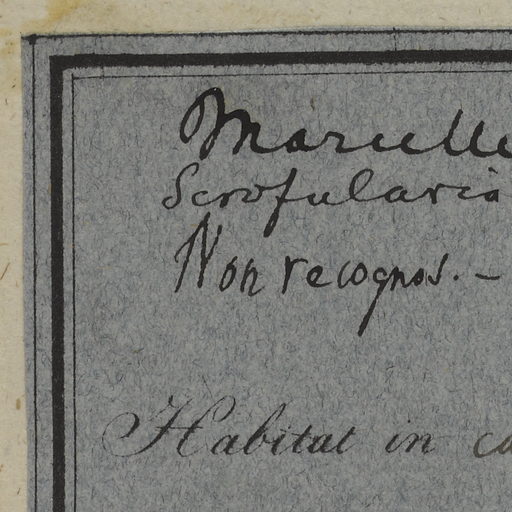 Marcelle
Scrofularia
Non recognos. -
Habitat in ca